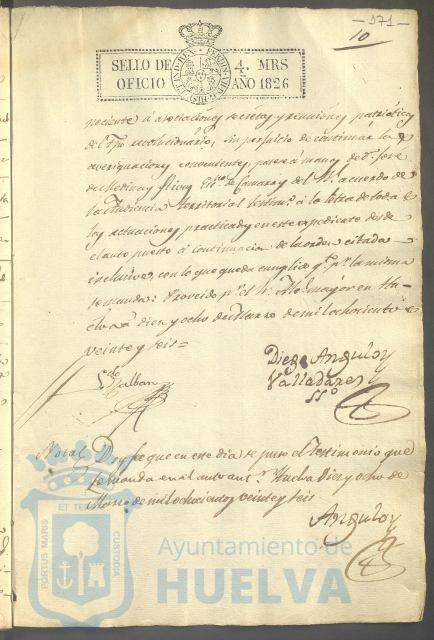 —571—
10
SELLO DE OFICIO
4. MRS AÑO 1826
neciente á asociaciones secretas y reuniones patrioticas
del tpo revolucionario, sin perjuicio de continuar las
averiguaciones convenientes, pase á manos de Dn. Jose
de Medina y de Camara del Rl. acuerdo de
la Audiencia Territorial testimo. á la letra de todas
las actuaciones practicadas en este expediente desde
el auto puesto á continuacion de la orden citada
inclusive, con lo que queda cumplido qto. pr. la misma
se manda: Proveido pr. el Sr. Alce. mayor en Hu-
elva á diez y ocho de Marzo de mil ochocientos
veinte y seis=
Villalban
Diego Angulo y
Valladares
SSo
Nota/ Doy fe que en este dia se puso el testimonio que
se manda en el auto antr. Huelva Diez y ocho de
Marzo de mil ochocientos veinte y seis
Angulo
PORTUS MARIS
ET TE
CUSTODIA
Ayuntamiento de
HUELVA